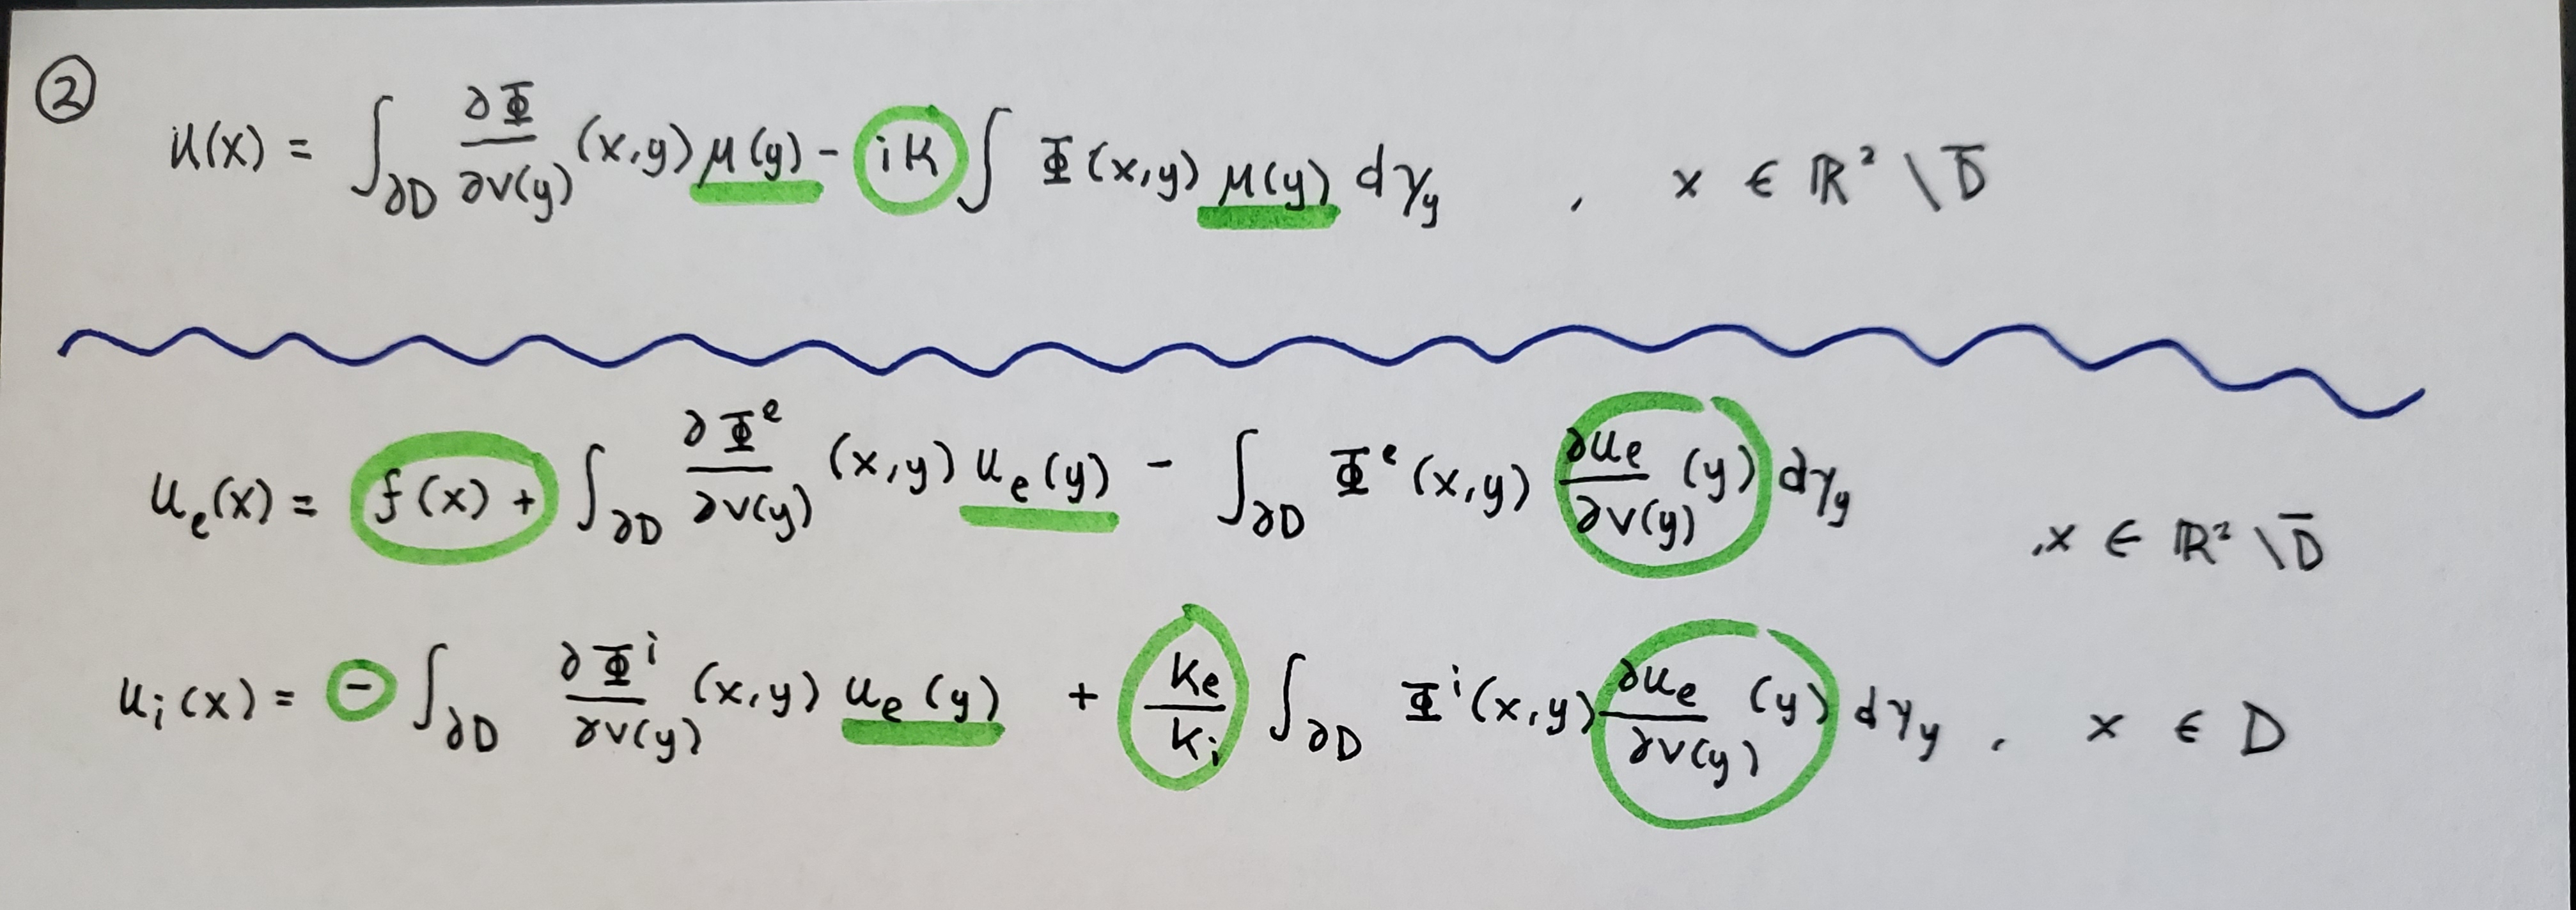 ②
u(x) = ∫_{∂D} ∂Φ/∂ν(y) (x,y) μ(y) - ik ∫ Φ(x,y) μ(y) dγ_y , x ∈ ℝ² \ D̄
u_e(x) = f(x) + ∫_{∂D} ∂Φ^e/∂ν(y) (x,y) u_e(y) - ∫_{∂D} Φ^e(x,y) ∂u_e/∂ν(y) (y) dγ_y , x ∈ ℝ² \ D̄
u_i(x) = - ∫_{∂D} ∂Φ^i/∂ν(y) (x,y) u_e(y) + k_e/k_i ∫_{∂D} Φ^i(x,y) ∂u_e/∂ν(y) (y) dγ_y , x ∈ D